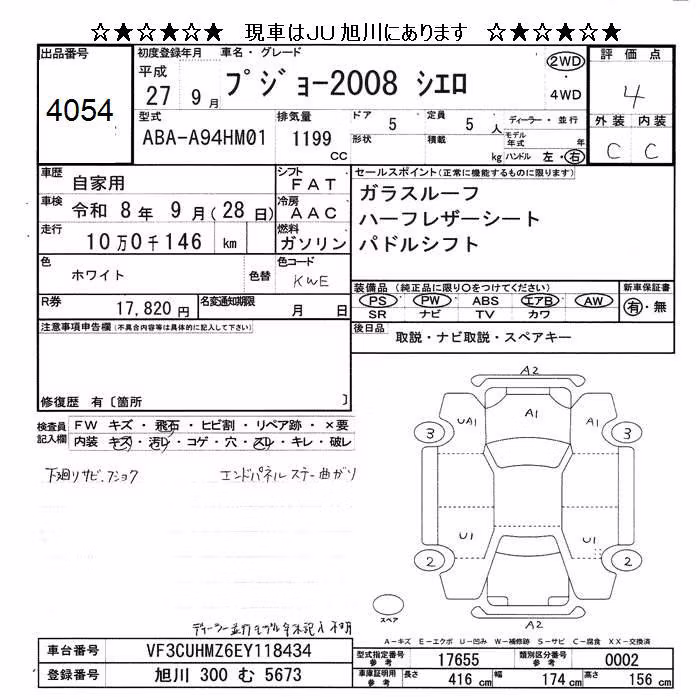 ☆★☆★☆★ 現車はJU旭川にあります ☆★☆★☆★
出品番号 4054
初度登録年月 平成 27 9月
車名・グレード プジョー2008 シエロ
2WD ・ 4WD
評価点 4
外装 内装
C C
型式 ABA-A94HM01
排気量 1199 CC
ドア 5 定員 5 人
形状 積載 kg
ディーラー・並行
モデル年式 年
ハンドル 左・右
車歴 自家用
シフト FAT
車検 令和 8年 9月(28日)
冷房 AAC
走行 10万0千146 km
燃料 ガソリン
色 ホワイト 色替
色コード KWE
R券 17,820円
名変通知期限 月 日
セールスポイント(正常に機能するものに限ります)
ガラスルーフ
ハーフレザーシート
パドルシフト
装備品(純正品に限り○をつけてください)
PS PW ABS エアB AW
SR ナビ TV カワ
新車保証書 有・無
後日品 取説・ナビ取説・スペアキー
注意事項申告欄(不具合内容等は具体的に記入して下さい)
修復歴 有〔箇所 〕
検査員記入欄
FW キズ・飛石・ヒビ割・リペア跡・×要
内装 キズ・汚レ・コゲ・穴・スレ・キレ・破レ
下廻りサビ.フショク エンドパネル ステー曲がり
ディーラー並行モデル年未記入 不明
A2
UA1 A1 A1
3 3
U1 U1
2 2
A2
スペア
A-キズ E-エクボ U-凹み W-補修跡 S-サビ C-腐食 XX-交換済
車台番号 VF3CUHMZ6EY118434
登録番号 旭川 300 む 5673
型式指定番号 参考 17655 類別区分番号 参考 0002
車庫証明用 参考 長さ 416 cm 幅 174 cm 高さ 156 cm